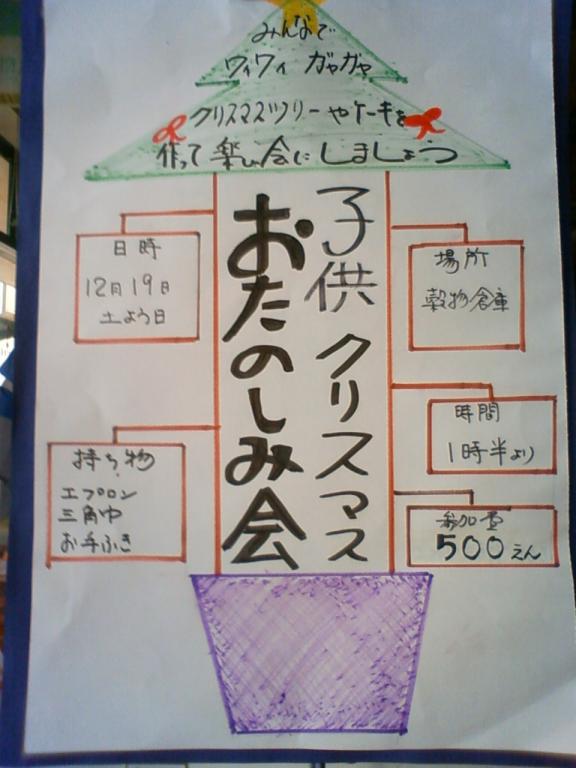 みんなで
ワイワイ ガヤガヤ
クリスマスツリーやケーキを
作って楽しい会にしましょう
子供クリスマス
おたのしみ会
日時
12月19日
土よう日
場所
穀物倉庫
時間
1時半より
持ち物
エプロン
三角巾
お手ふき
参加費
500えん